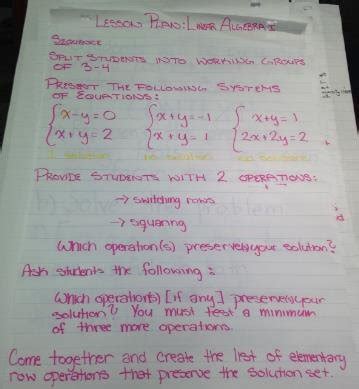 LESSON PLAN: LINEAR ALGEBRA I
SEQUENCE
SPLIT STUDENTS INTO WORKING GROUPS
OF 3-4
PRESENT THE FOLLOWING SYSTEMS
OF EQUATIONS:
x-y=0 x+y=-1 x+y=1
x+y=2 x+y=1 2x+2y=2
1 solution no solution
PROVIDE STUDENTS WITH 2 OPERATIONS:
→ switching rows
→ squaring
Which operation(s) preserve your solution?
Ask students the following:
Which operation(s) [if any] preserve your
solution? You must test a minimum
of three more operations.
Come together and create the list of elementary
row operations that preserve the solution set.